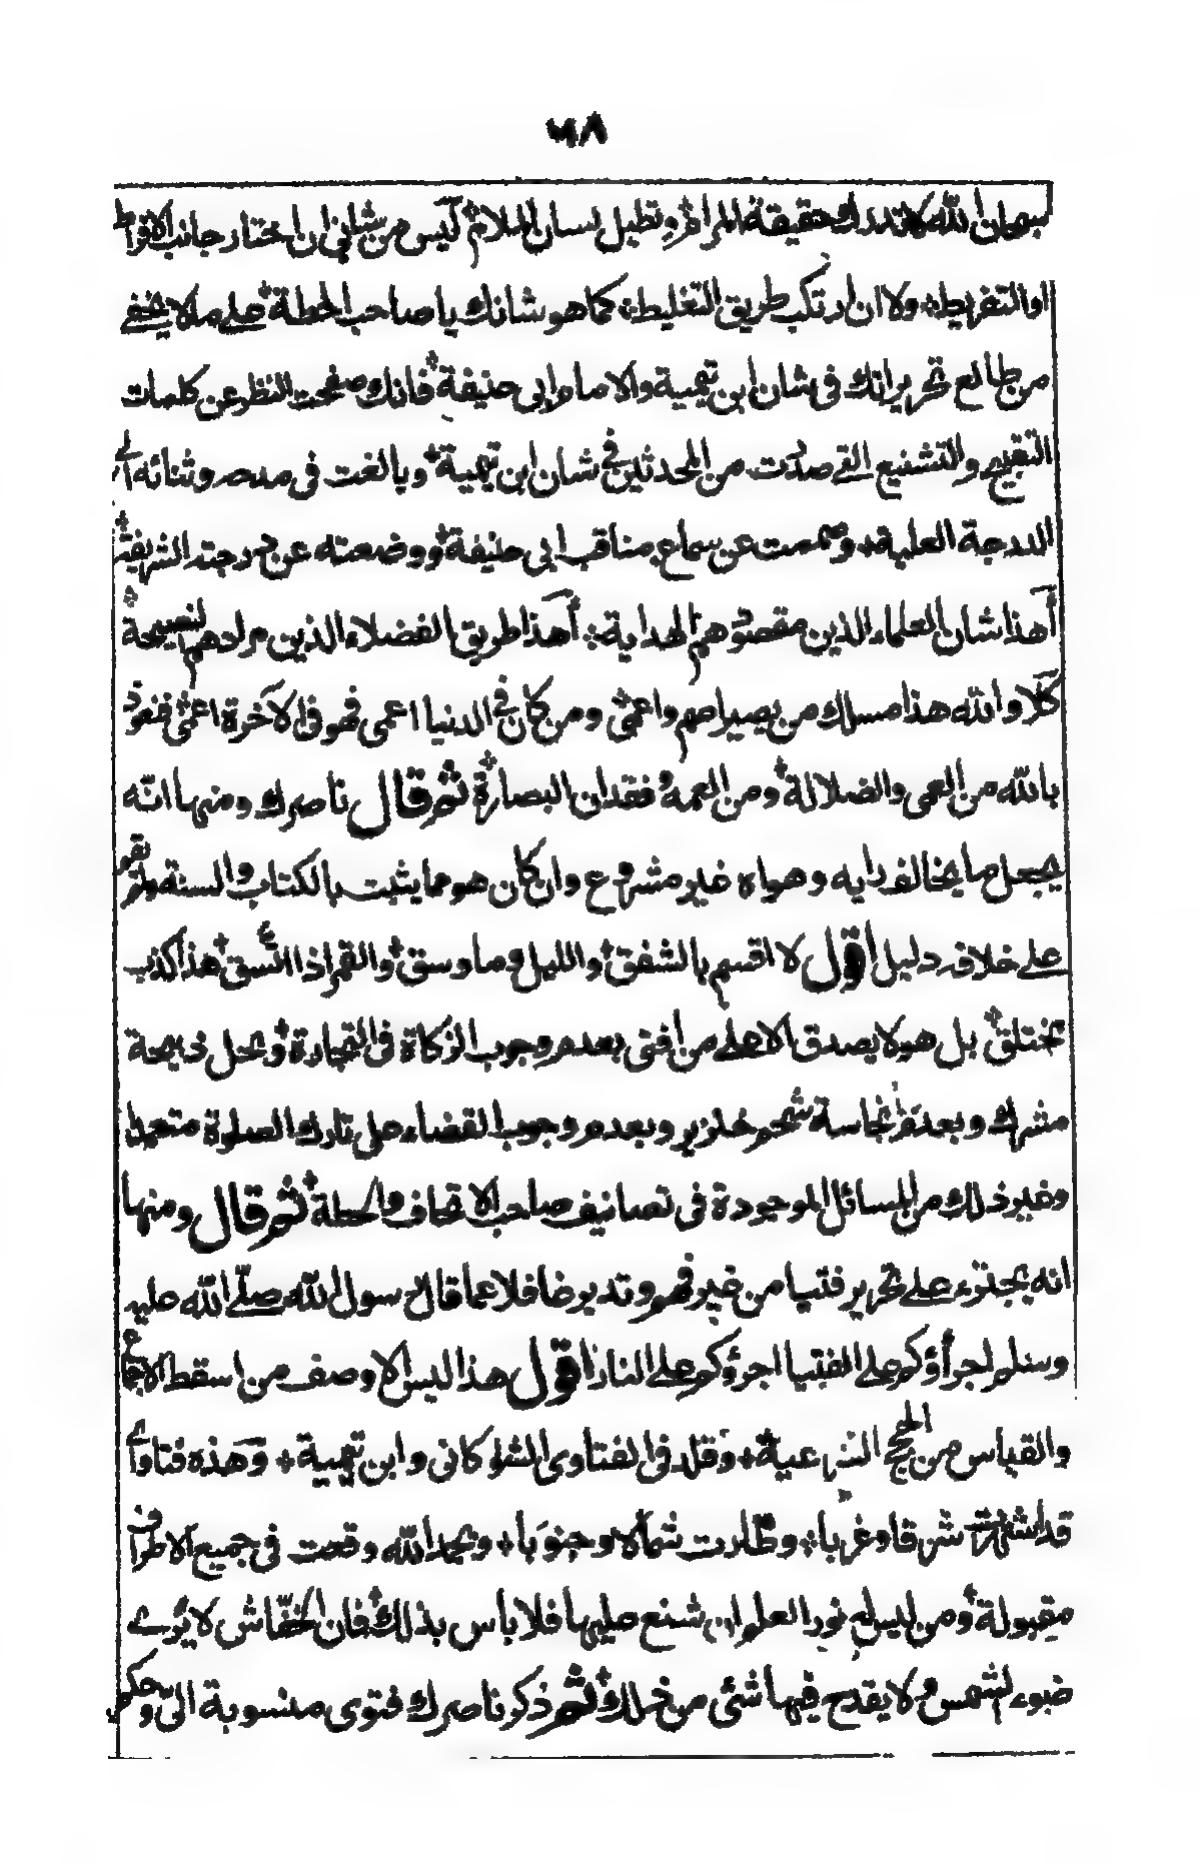 ٥٨
سبحان الله لا تدرك حقيقة المرام وتطيل لسان الملام ليس من شانى ان اختار جانب الافراط
او التفريط ولا ان ارتكب طريق التغليط كما هو شانك يا صاحب الحطة على ما لا يخفى
من طالع تحريراتك فى شان ابن تيمية والامام ابى حنيفة فانك صفحت النظر عن كلمات
التقبيح والتشنيع التى صدرت من المحدثين فى شان ابن تيمية وبالغت فى مدحه وثنائه الى
الدرجة العلية وصممت عن سماع مناقب ابى حنيفة ووضعته عن درجته الشريفة
أهذا شان العلماء الذين مقصودهم الهداية أهذا طريق الفضلاء الذين مرادهم النصيحة
كلا والله هذا مسلك من بصير اصم واعمى ومن كان فى الدنيا اعمى فهو فى الآخرة اعمى فنعوذ
بالله من العمى والضلالة ومن العمه فقدان البصارة ثم قال ناصرك ومنها انه
يجعل ما يخالف رايه وهواه غير مشروع وان كان هو مما يثبت بالكتاب والسنة ولم يقم
على خلافه دليل اقول لا اقسم بالشفق والليل وما وسق والقمر اذا اتسق هذا كذب
مختلق بل هو لا يصدق الا على من افتى بعدم وجوب الزكاة فى التجارة وبحل ذبيحة
مشرك وبعدم نجاسة شحم خنزير وبعدم وجوب القضاء على تارك الصلوة متعمدا
وغير ذلك من المسائل الموجودة فى تصانيف صاحب الاتحاف والحطة ثم قال ومنها
انه يجتزء على تحرير فتيا من غير فهم وتدبر غافلا عما قال رسول الله صلى الله عليه
وسلم اجرأؤكم على الفتيا اجرؤكم على النار اقول هذا ليس الا وصف من اسقط الاجماع
والقياس من الحجج الشرعية وقلد فى الفتاوى الشوكانى وابن تيمية وهذه فتاواى
قد اشتهرت شرقا وغربا وطارت شمالا وجنوبا وبحمد الله وقعت فى جميع الاطراف
مقبولة ومن ليس له نور العلم ان شنع عليها فلا باس بذلك فان الخفاش لا يرى
ضوء الشمس ولا يقدح فيها شئ من ذلك ثم ذكر ناصرك فتوى منسوبة الى وحكم